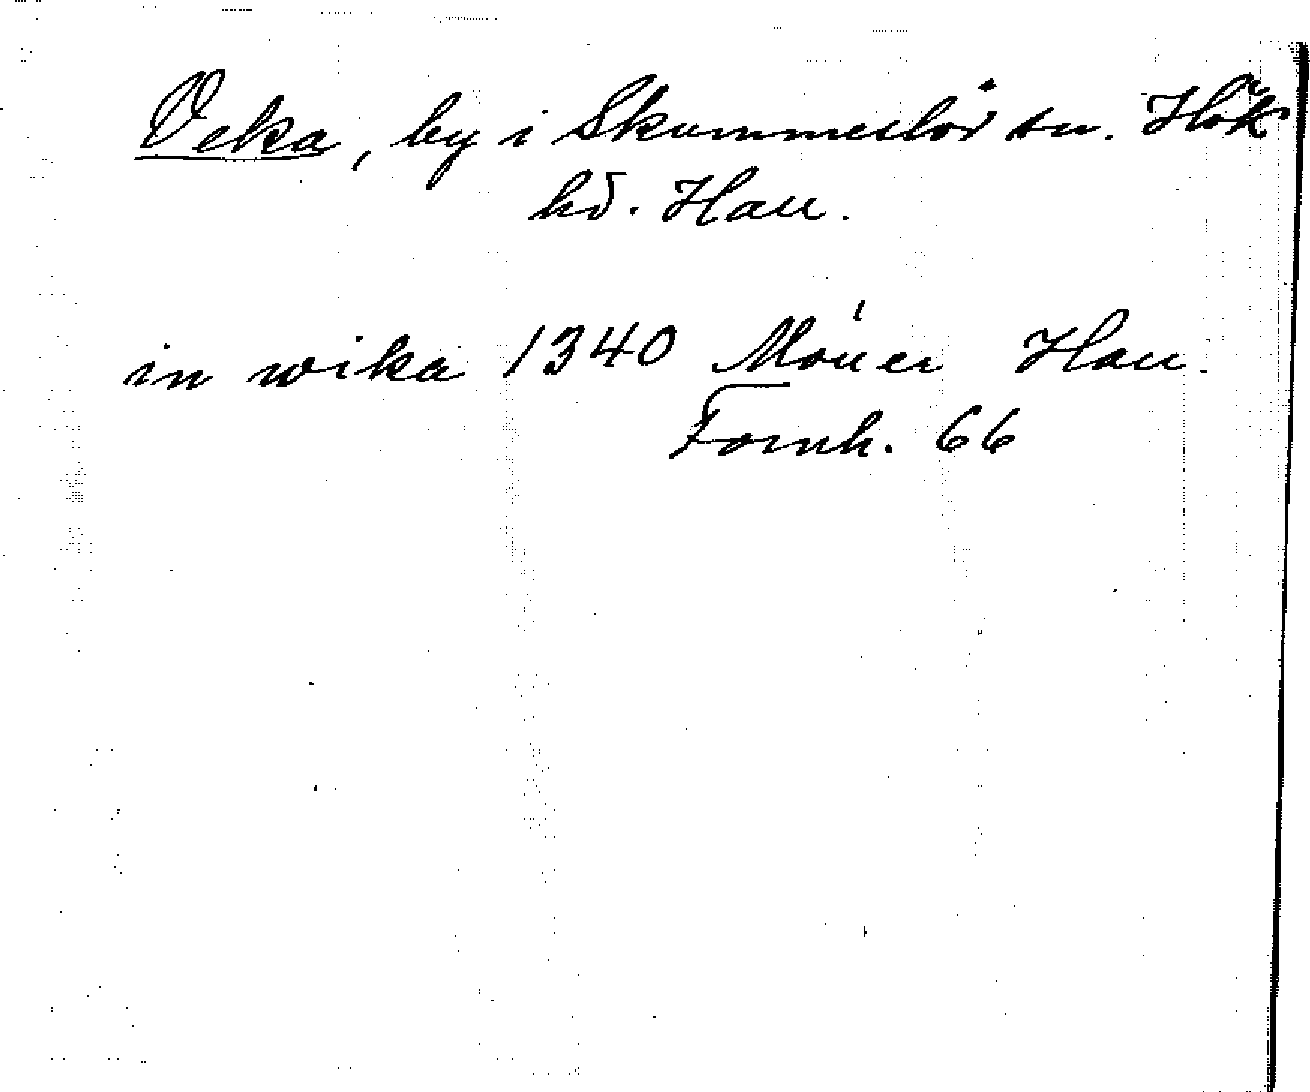 Veka, by i Skummeslöv sn. Hök
hd. Hall.
in wika 1340 Mörner Hall.
Fornh. 66